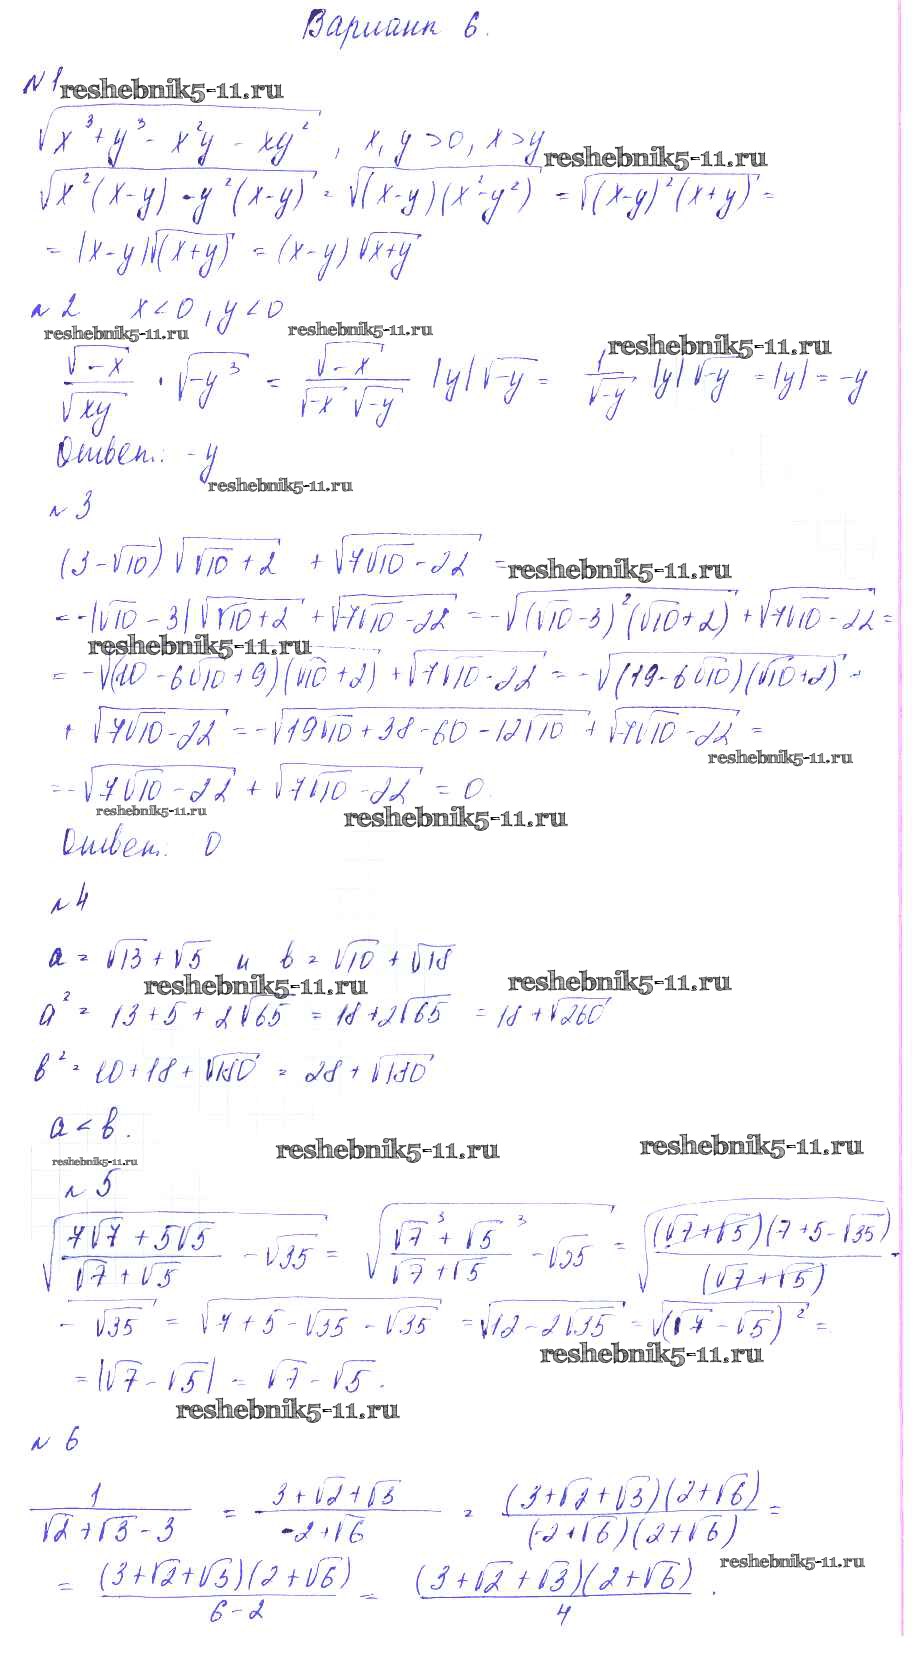 Вариант 6.
№1 reshebnik5-11.ru
√(x³+y³-x²y-xy²), x,y>0, x>y
reshebnik5-11.ru
√(x²(x-y)-y²(x-y)) = √((x-y)(x²-y²)) = √((x-y)²(x+y)) =
= |x-y|√(x+y) = (x-y)√(x+y)
№2 x<0, y<0
reshebnik5-11.ru reshebnik5-11.ru reshebnik5-11.ru
√(-x)/√(xy) · √(-y³) = √(-x)/(√(-x) √(-y)) |y|√(-y) = 1/√(-y) |y|√(-y) = |y| = -y
Ответ: -y
reshebnik5-11.ru
№3
(3-√10)√(√10+2) + √(7√10-22) =
reshebnik5-11.ru
= -|√10-3|√(√10+2) + √(7√10-22) = -√((√10-3)²(√10+2)) + √(7√10-22) =
reshebnik5-11.ru
= -√((10-6√10+9)(√10+2)) + √(7√10-22) = -√((19-6√10)(√10+2)) +
+ √(7√10-22) = -√(19√10+38-60-12√10) + √(7√10-22) =
reshebnik5-11.ru
= -√(7√10-22) + √(7√10-22) = 0.
reshebnik5-11.ru reshebnik5-11.ru
Ответ: 0
№4
a = √13+√5 и b = √10+√18
reshebnik5-11.ru reshebnik5-11.ru
a² = 13+5+2√65 = 18+2√65 = 18+√260
b² = 10+18+√180 = 28+√180
a<b.
reshebnik5-11.ru reshebnik5-11.ru reshebnik5-11.ru
№5
√((7√7+5√5)/(√7+√5) - √35) = √((√7³+√5³)/(√7+√5) - √35) = √((√7+√5)(7+5-√35)/(√7+√5) -
- √35) = √(7+5-√35-√35) = √(12-2√35) = √((√7-√5)²) =
reshebnik5-11.ru
= |√7-√5| = √7-√5.
reshebnik5-11.ru
№6
1/(√2+√3-3) = (3+√2+√3)/(-2+√6) = (3+√2+√3)(2+√6)/((-2+√6)(2+√6)) =
reshebnik5-11.ru
= (3+√2+√3)(2+√6)/(6-2) = (3+√2+√3)(2+√6)/4.